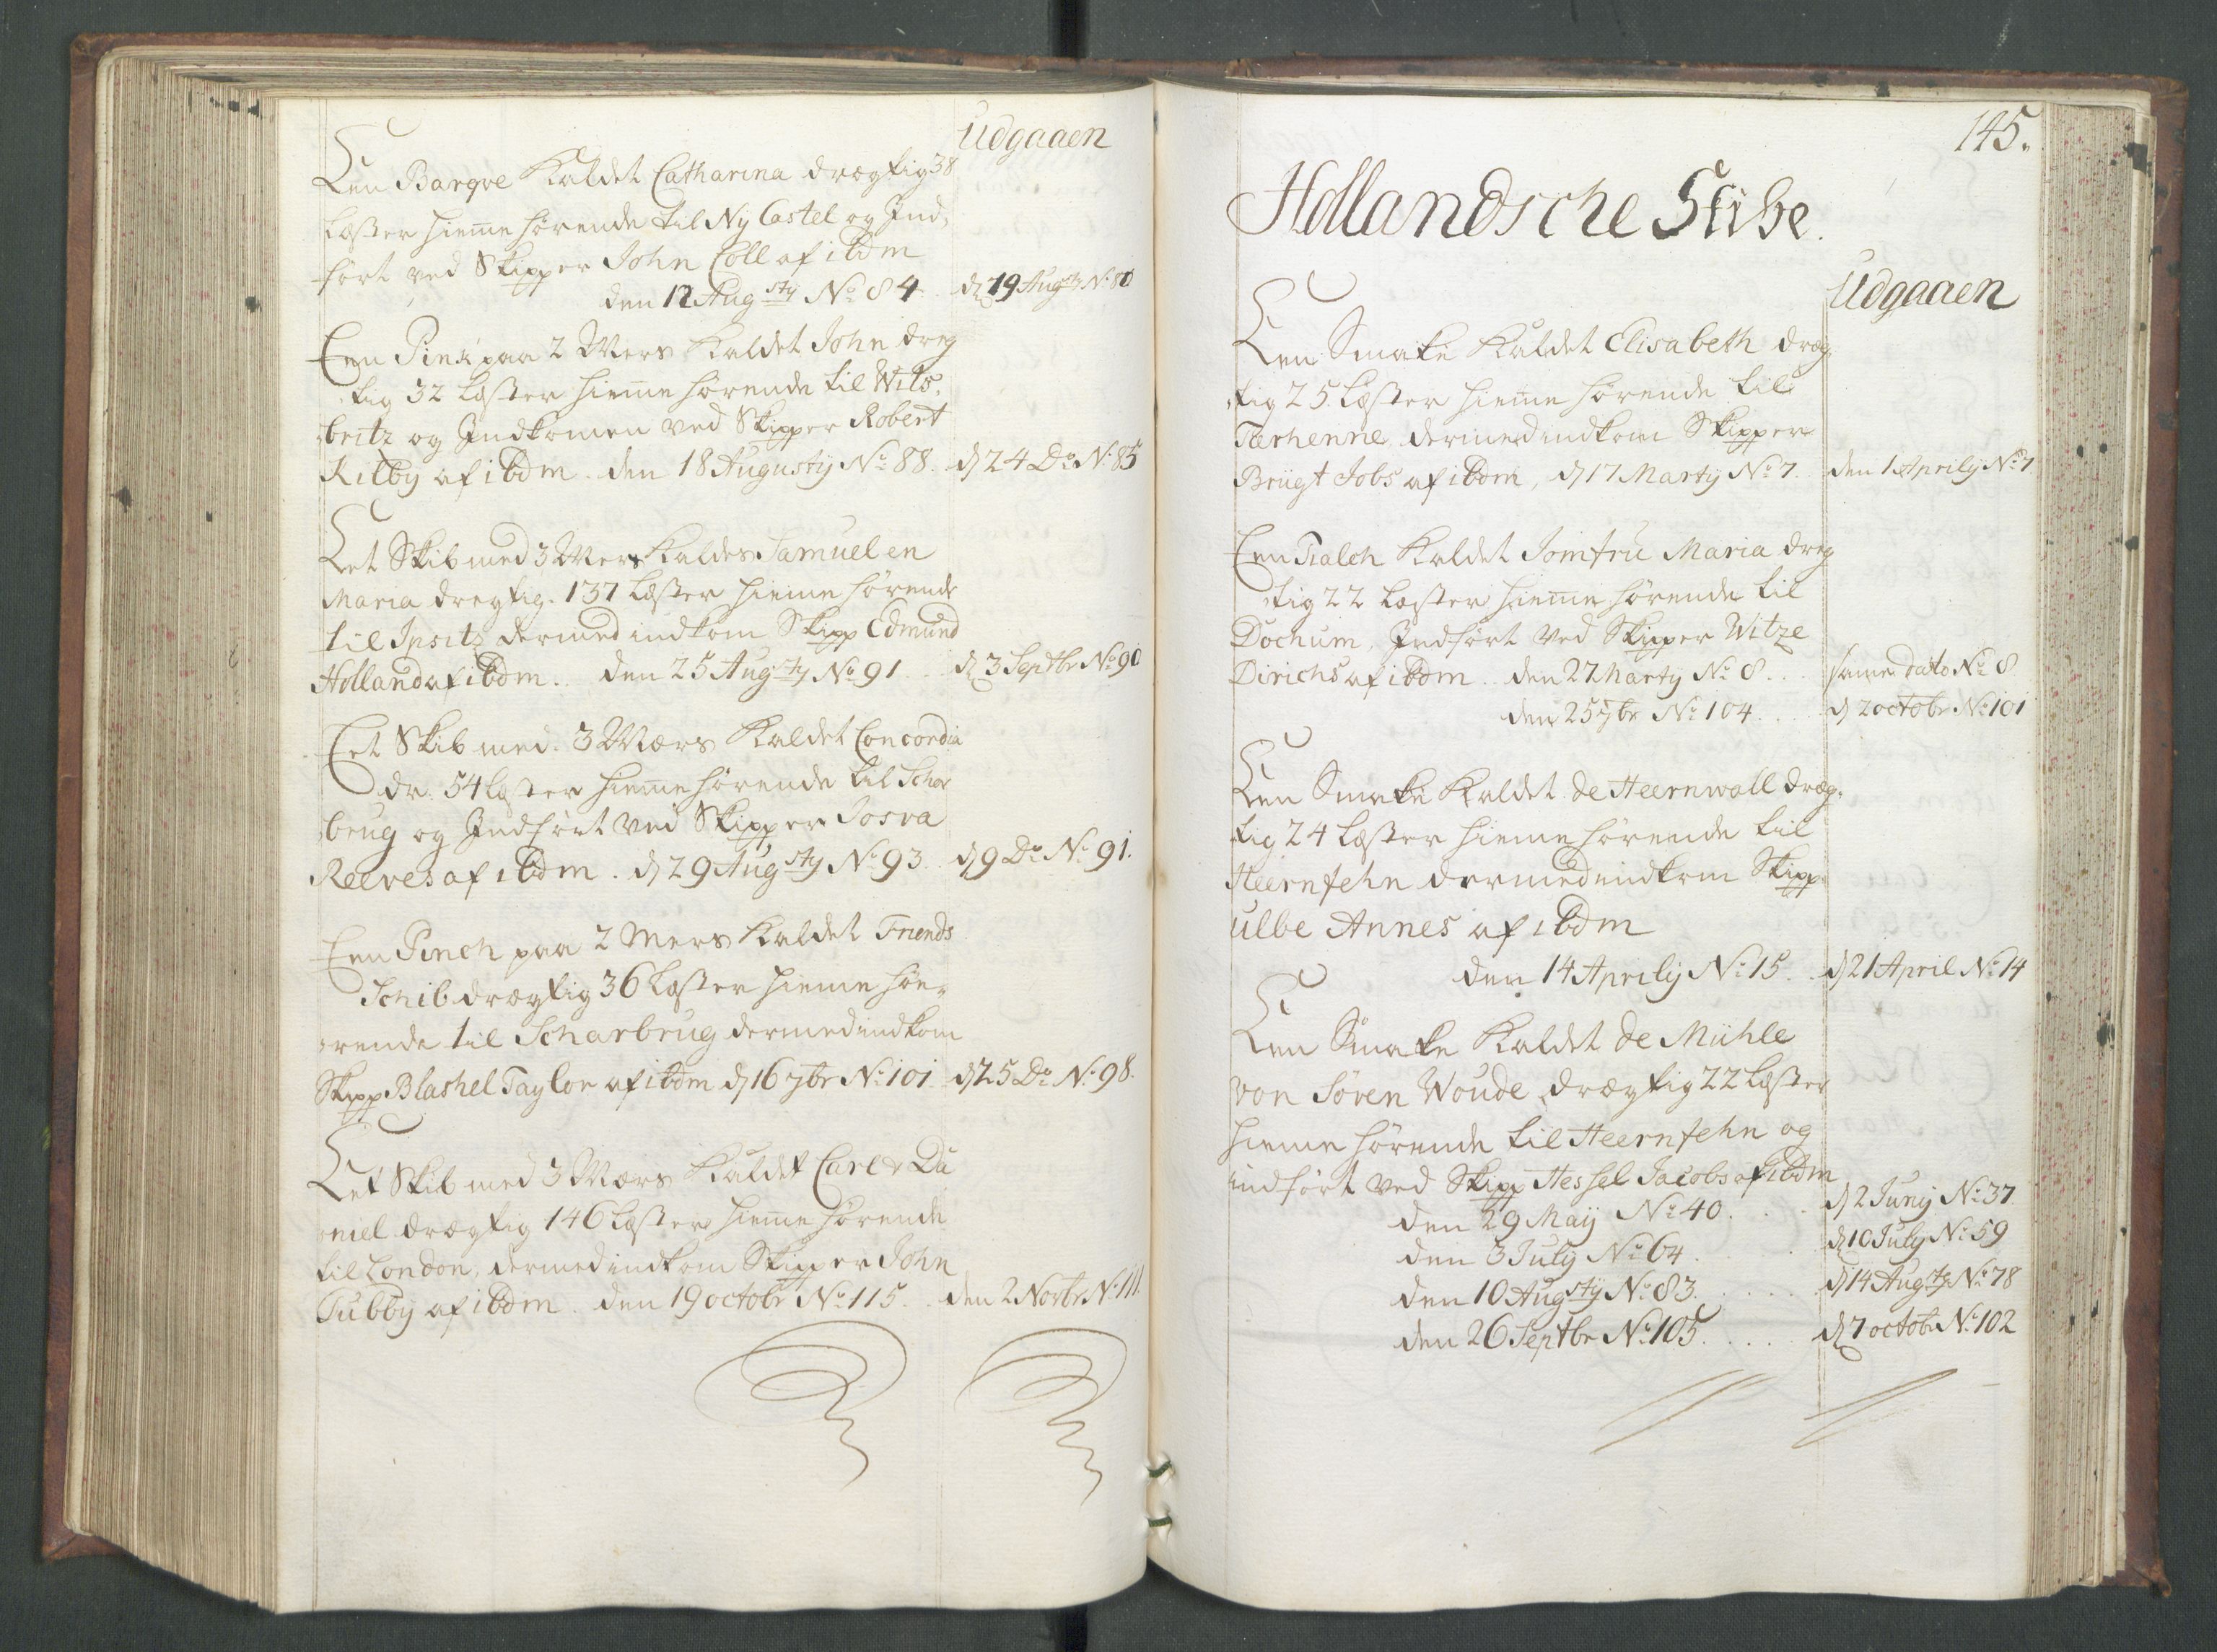 Udgaaen
Een Barqve Kaldet Catharina drægtig 38
Læster Hiemehørende til Ny Castel og Ind,
ført ved Skipper John Coll af ibdm
den 12 Augsty No 84. dn 19 Augsty No 80
Een Pink paa 2 Mers Kaldet John dreg
tig 32 Læster Hiemehørende til Wits,
britz og Indkomen ved Skipper Robert
Kilby af ibdm. den 18 Augusty No 88. dn 24 Do No 85
Eet Skib med 3 Mers Kaldes Samuel en
Maria dregtig. 137 Læster Hieme hørende
til Ipsits dermed indkom Skipp Edmund
Holland af ibdm. den 25 Augsty No 91 dn 3 Septbr No 90
Eet Skib med. 3 Mærs Kaldet Concordia
dr. 54 Læster Hiemehørende til Schar
brug og Indført ved Skipper Josva
Reeves af ibdm. dn 29 Augsty No 93. dn 9 Do No 91.
Een Pinch paa 2 Mers Kaldet Friends
Schib drægtig 36 Læster Hieme Hø,
rende til Scharbrug dermed indkom
Skipp Blashel Taylor af ibdm dn 16 7br No 101 dn 25 Do No 98.
Eet Skib med 3 Mærs Kaldet Carl & Da
niel drægtig 146 Læster Hieme hørende
til London, dermed indkom Skipper John
Tubby af ibdm. den 19 octobr No 115. den 2 Novbr No 111.
145.
Hollandsche Skibe.
Udgaaen
Een Smake Kaldet Elisabeth dræg,
tig 25. Læster Hieme hørende til
Terhenne dermed indkom Skipper
Brügt Jobs af ibdm, dn 17 Marty No 7. den 1 Aprily No 7.
Een Tialch Kaldet Jomfru Maria dreg
tig 22 Læster Hieme hørende til
Dochum, Indført ved Skipper Witze
Dirichs af ibdm. den 27 Marty No 8... same dato No 8
den 25 7br No 104.... dn 2 octobr No 101
Een Smake Kaldet de Heernwall dræg,
tig 24 Læster Hieme hørende til
Heernfehn dermed indkom Skipp
Ulbe Annes af ibdm
den 14 Aprily No 15. dn 21 April No 14
Een Smake Kaldet de Mühle
von Søven Woude drægtig 22 Læster
Hieme hørende til Heernfehn og
indført ved Skipp Hessel Jacobs af ibdm
den 29 Maij No 40.... dn 2 Junij No 37
den 3 July No 64.... dn 10 July No 59
den 10 Augsty No 83..... dn 14 Augsty No 78
den 26 Septbr No 105.... dn 7 octobr No 102